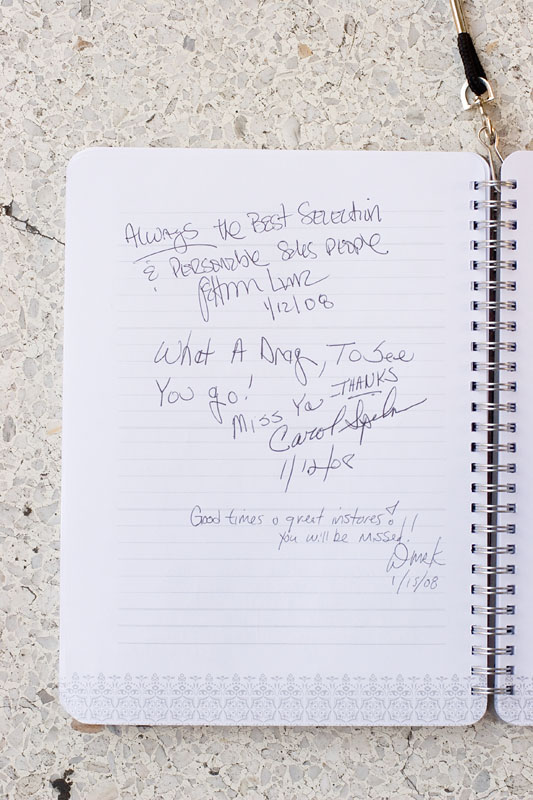 Always the Best Selection
& Personable Sales People
1/12/08
What A Drag, To See
You go!
Miss You THANKS
Carol
1/12/08
Good times & great instores!
You will be missed!!
1/15/08